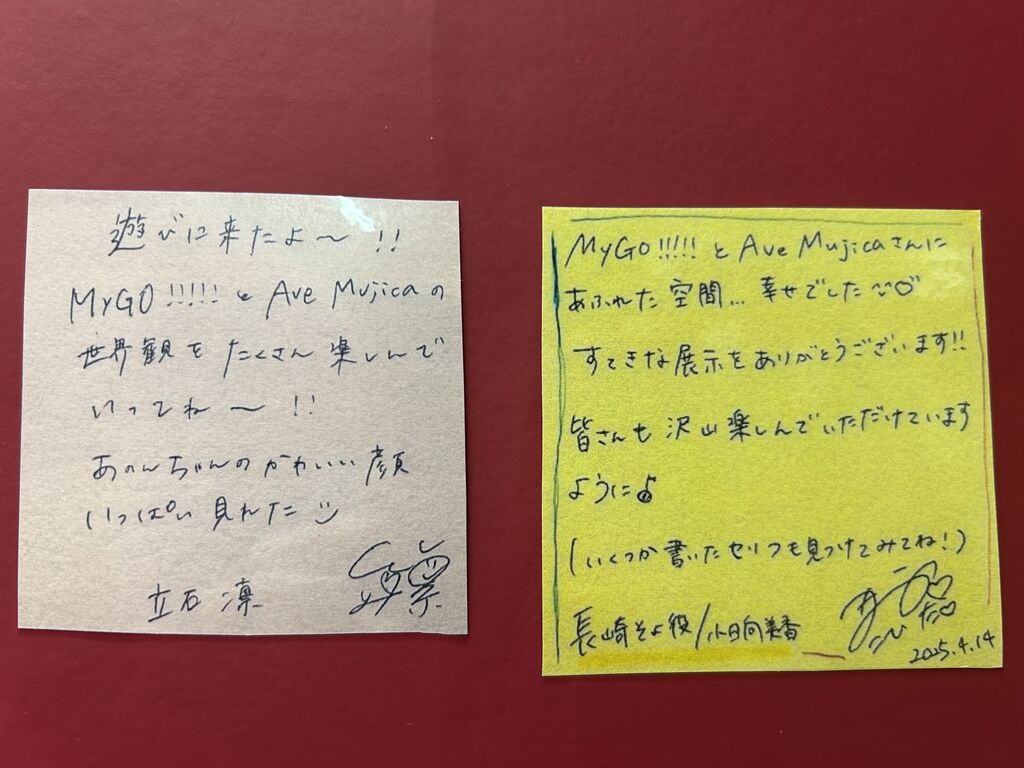 遊びに来たよ〜!!
MyGO!!!!!とAve Mujicaの
世界観をたくさん楽しんで
いってね〜!!
あのんちゃんのかわいい顔
いっぱい見れた
立石凛
MyGO!!!!!とAve Mujicaさんに
あふれた空間...幸せでした♡
すてきな展示をありがとうございます!!
皆さんも沢山楽しんでいただけています
ように♪
(いくつか書いたセリフも見つけてみてね!)
長崎そよ役/小日向美香
2025.4.14